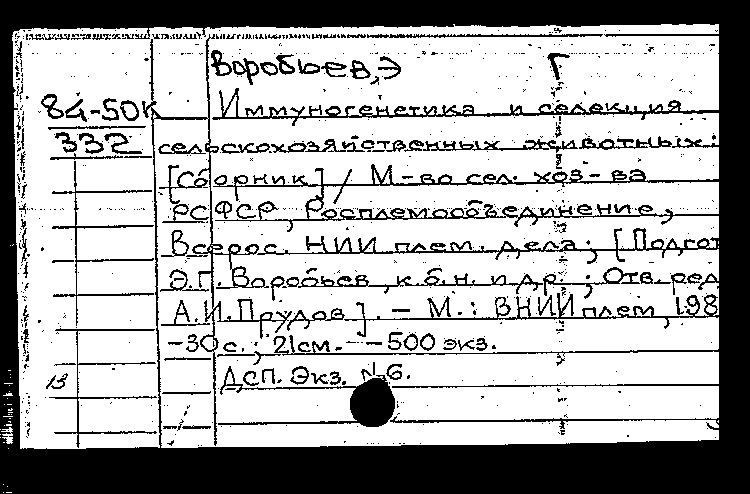 Воробьев, Э Г
84-50К
332
Иммуногенетика и селекция
сельскохозяйственных животных:
[Сборник] / М-во сел. хоз-ва
РСФСР, Росплемообъединение,
Всерос. НИИ плем. дела; [Подгот
Э.Г. Воробьев, к.б.н. и др.; Отв. ред
А.И. Прудов]. - М.: ВНИИплем, 198
-30с.; 21см. - 500 экз.
13 ДСП. Экз. №6.